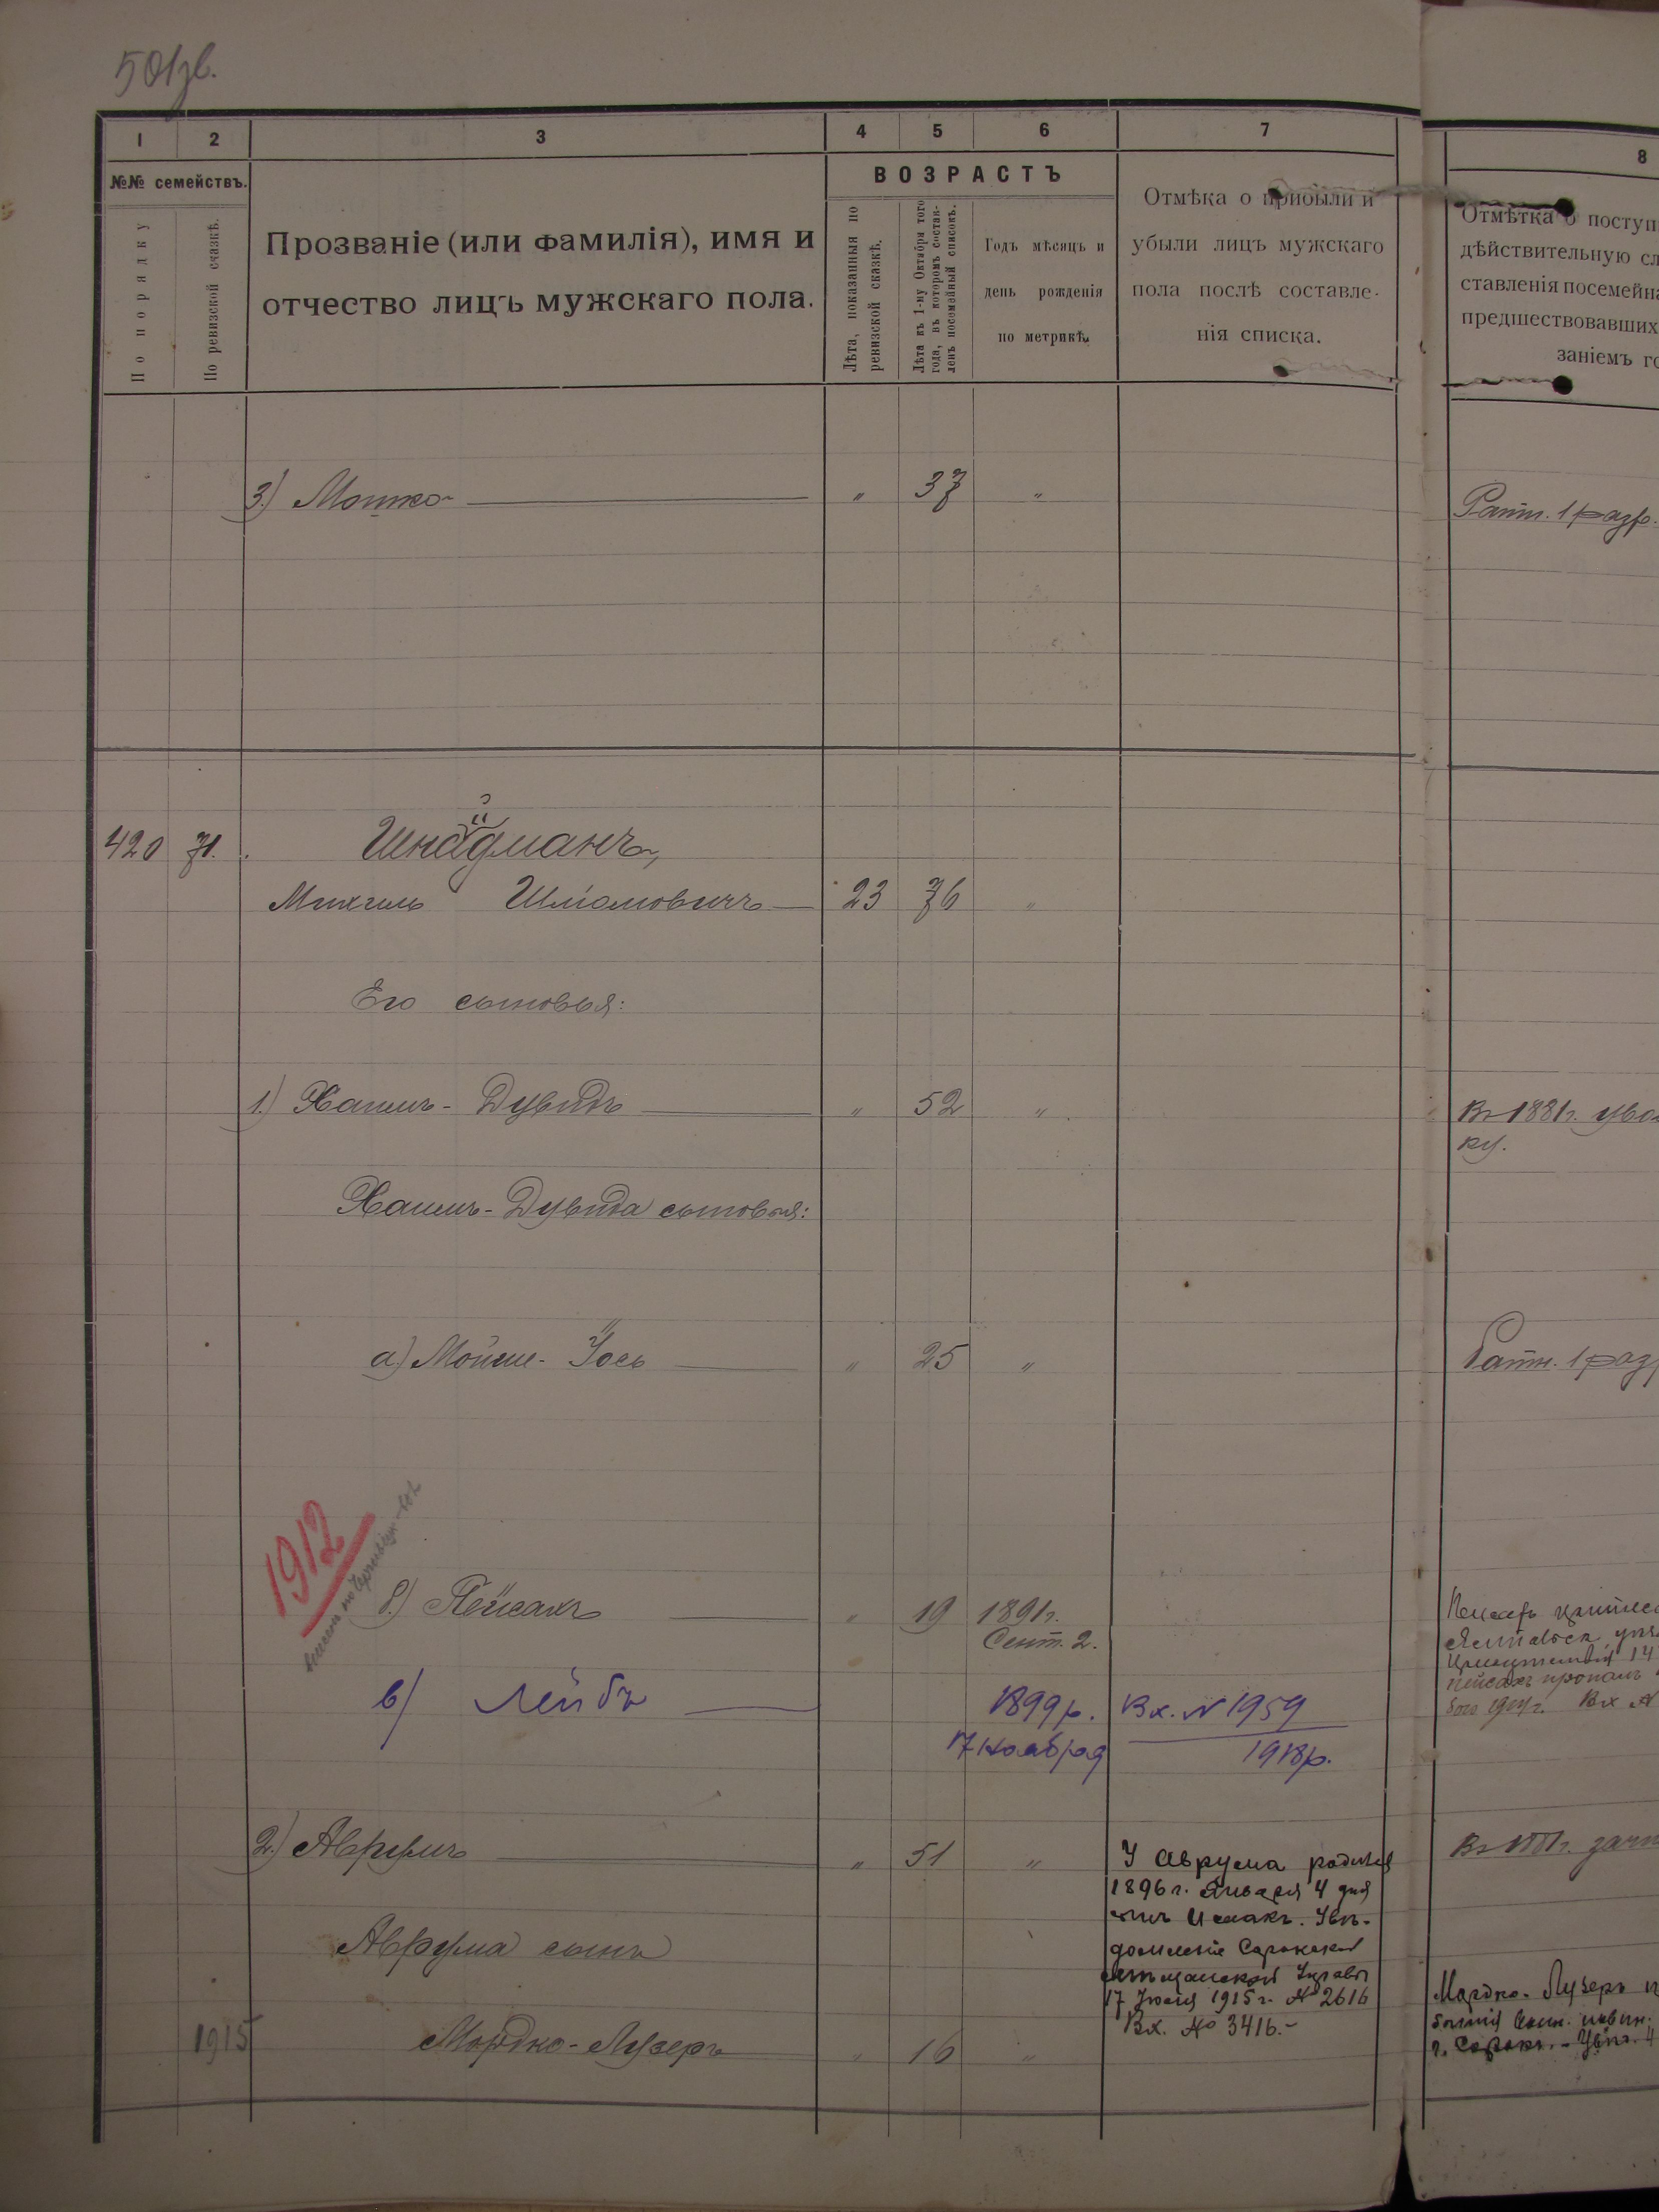 501зв.
1 2 3 4 5 6 7 8
№№ семействъ.
По порядку
По ревизской сказкѣ.
Прозваніе (или фамилія), имя и
отчество лицъ мужскаго пола.
ВОЗРАСТЪ
Лѣта, показанныя по
ревизской сказкѣ.
Лѣта къ 1-му Октября того
года, въ которомъ состав-
ленъ посемейный списокъ.
Годъ мѣсяцъ и
день рожденія
по метрикѣ.
Отмѣка о прибыли и
убыли лицъ мужскаго
пола послѣ составле-
нія списка.
Отмѣтка о поступ
дѣйствительную сл
ставленія посемейна
предшествовавшихъ
заніемъ го
3.) Мошко — " 37 "
Ратн. 1 разр.
420 71. Шнайдманъ,
Михель Шліомовичъ — 23 76 "
Его сыновья:
1.) Хаимъ-Дувидъ — " 52 "
Въ 1881г. уво
ку.
Хаимъ-Дувида сыновья:
а) Мойше-Іось — " 25 "
Ратн. 1 раз
1912
б.) Пейсахъ — " 19 1891г.
Сент. 2.
в) Лейбъ — 1899р. Вх. N 1959
17 Ноября 1918р.
2.) Аврумъ — " 51 "
У Аврума родился
1896 г. Января 4 дня
сынъ Исаакъ. Увѣ-
домленіе Сорокской
Мѣщанской Управы
17 Іюля 1915 г. № 2616
Вх. № 3416.-
Аврума сынъ
1915 Мордко-Лузеръ " 16 "
Мордко-Лузеръ
г. Сорокъ. - Увѣд. 4